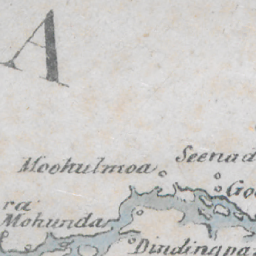 A
Moohulmoa
Seenad
Go
ra
Mohunda
Dindingpa